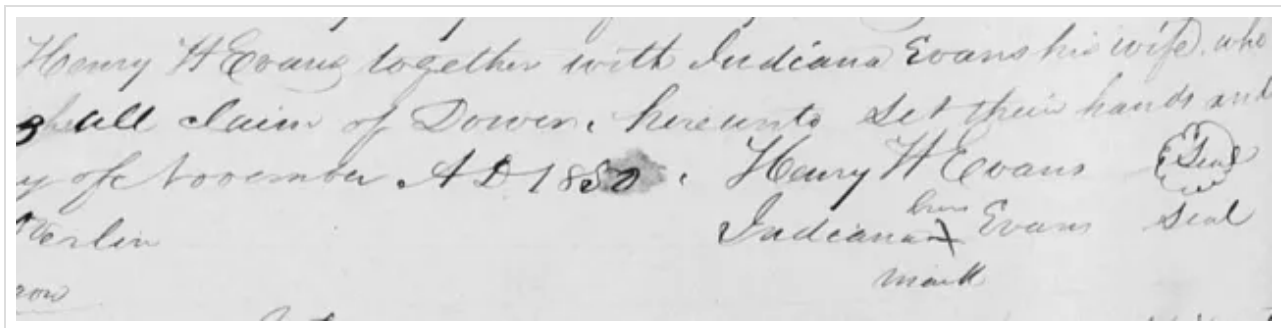 Henry H Evans together with Indiana Evans his wife. who
all claim of Dower, hereunto Set their hands and
y of November A D 1850. Henry H Evans Seal
Indiana her X mark Evans Seal